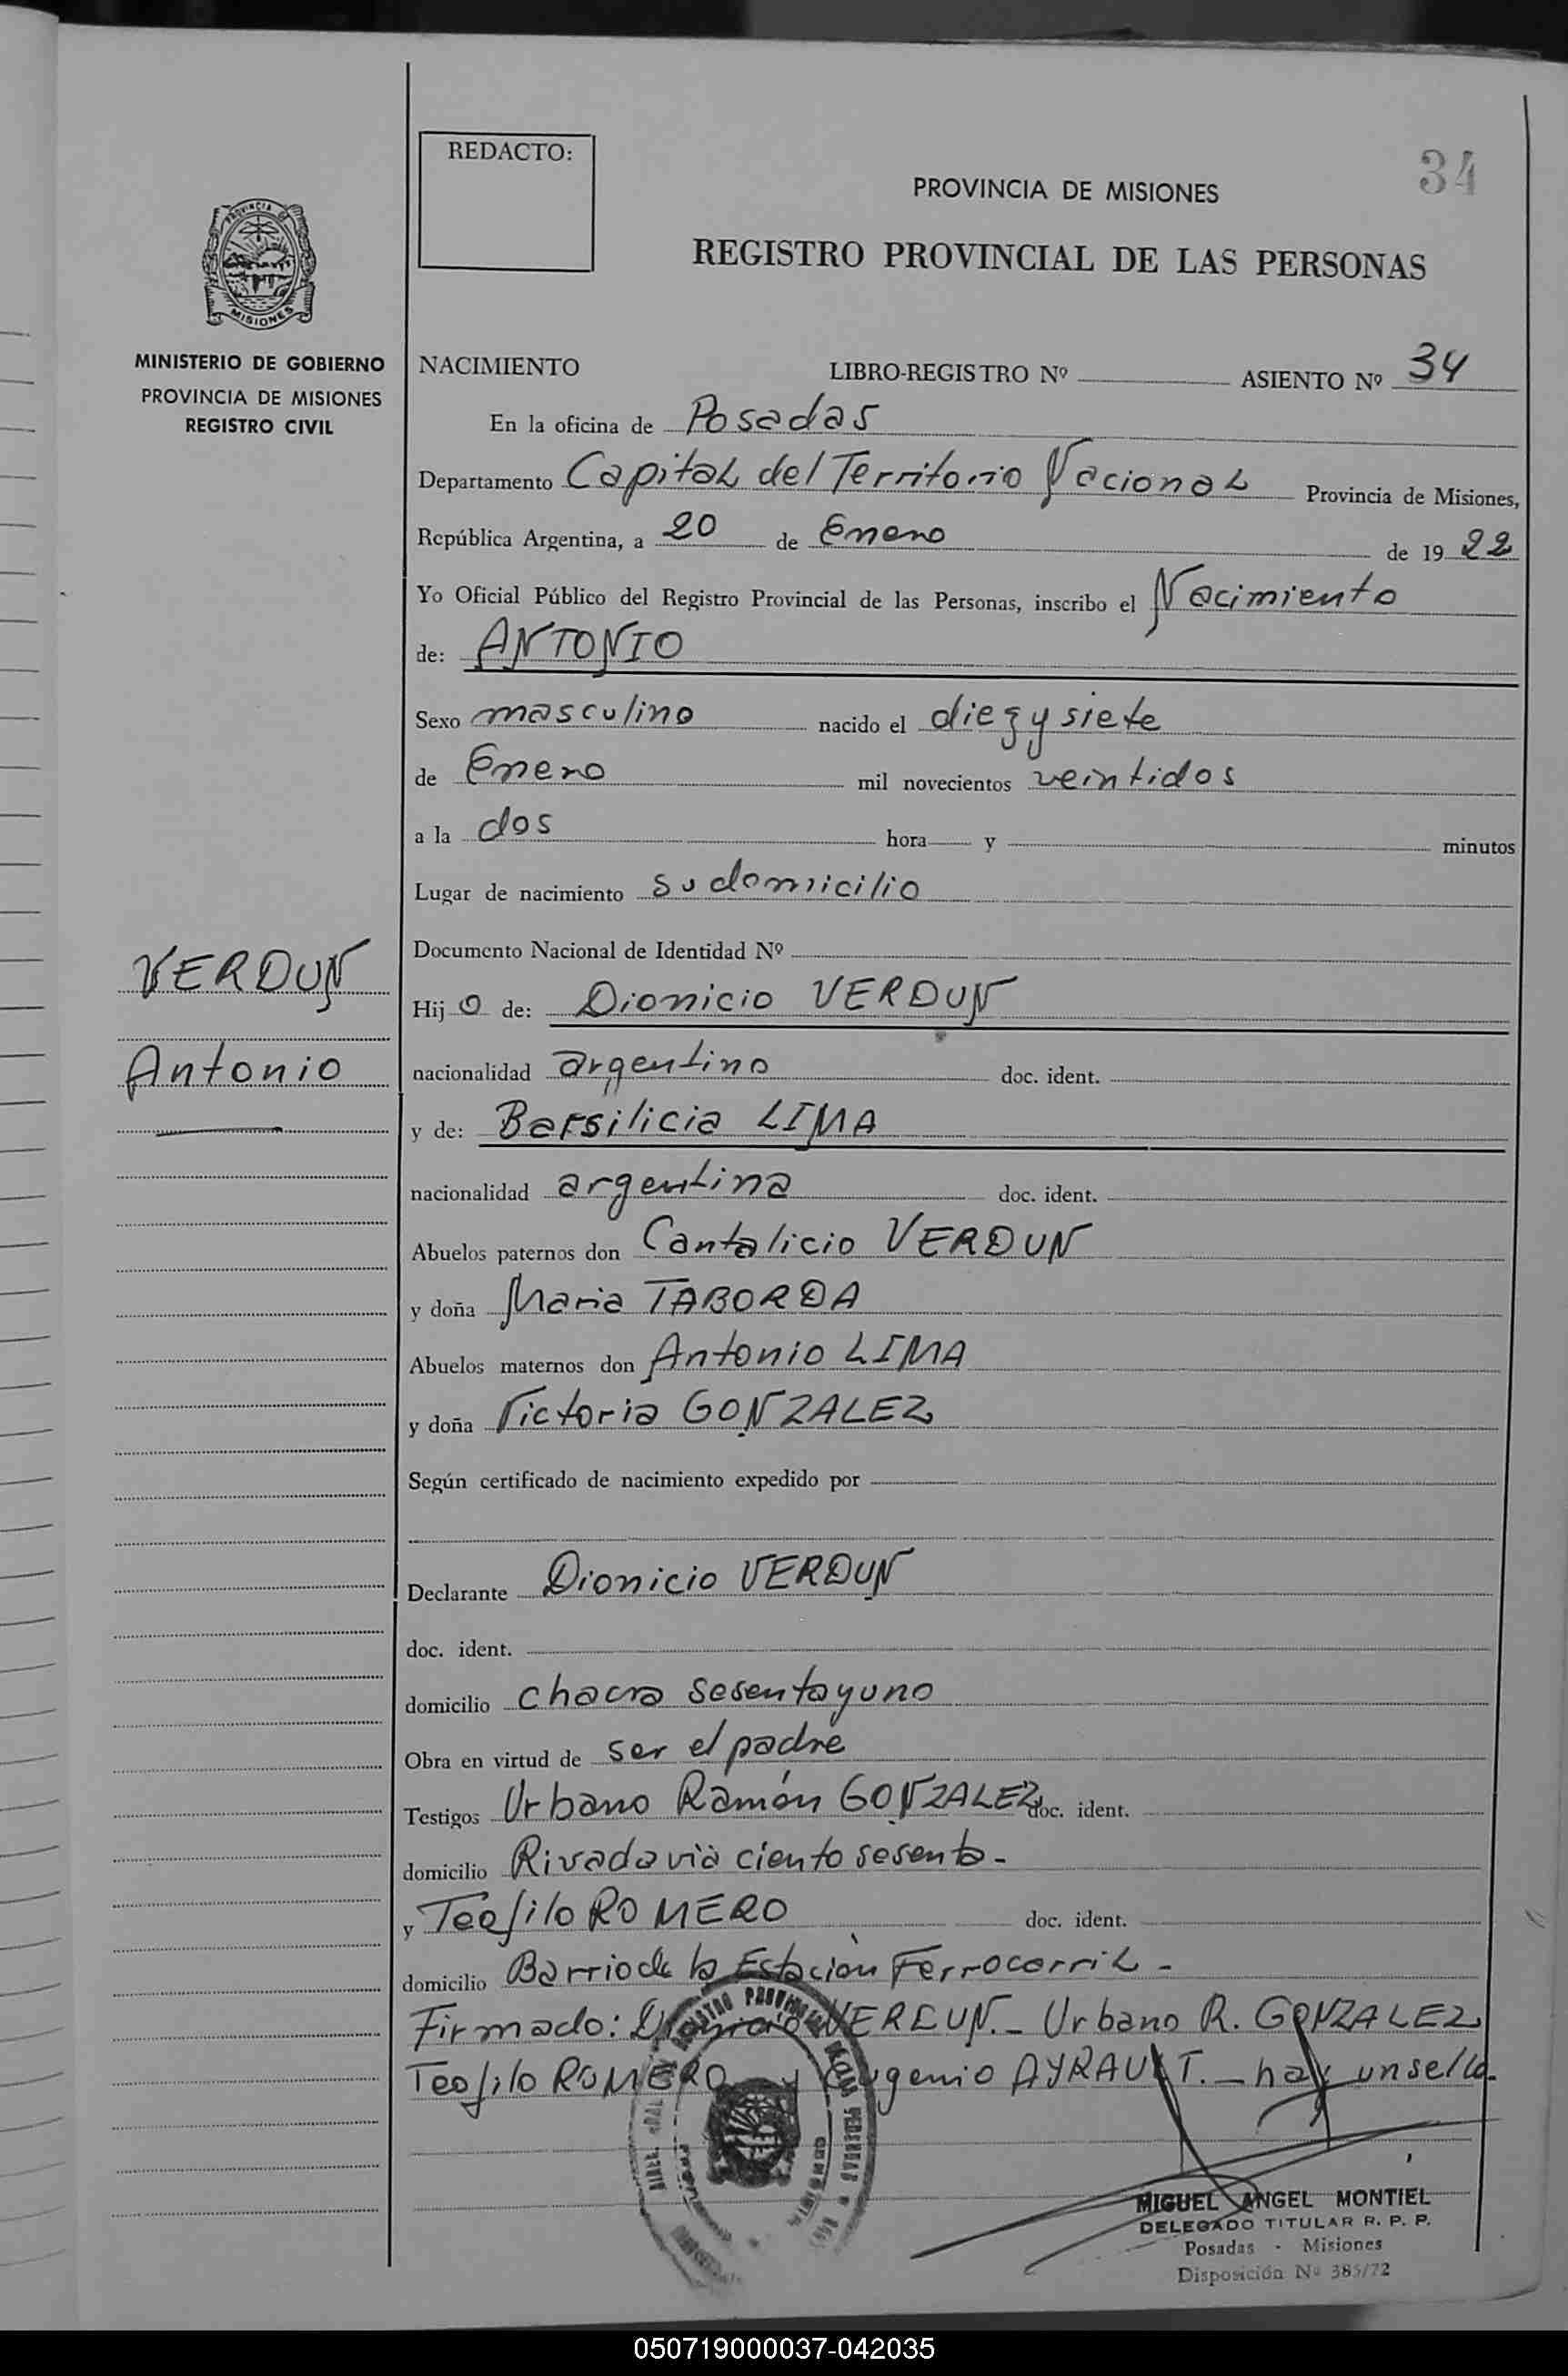 REDACTO:
34
PROVINCIA DE MISIONES
REGISTRO PROVINCIAL DE LAS PERSONAS
PROVINCIA DE
MISIONES
MINISTERIO DE GOBIERNO
PROVINCIA DE MISIONES
REGISTRO CIVIL
NACIMIENTO LIBRO-REGISTRO Nº ASIENTO Nº 34
En la oficina de Posadas
Departamento Capital del Territorio Nacional Provincia de Misiones,
República Argentina, a 20 de Enero de 1922
Yo Oficial Público del Registro Provincial de las Personas, inscribo el Nacimiento
de: ANTONIO
Sexo masculino nacido el diez y siete
de Enero mil novecientos veintidos
a la dos hora y minutos
Lugar de nacimiento su domicilio
Documento Nacional de Identidad Nº
VERDUN
Hijo de: Dionicio VERDUN
Antonio
nacionalidad argentino doc. ident.
y de: Barsilicia LIMA
nacionalidad argentina doc. ident.
Abuelos paternos don Cantalicio VERDUN
y doña Maria TABORDA
Abuelos maternos don Antonio LIMA
y doña Victoria GONZALEZ
Según certificado de nacimiento expedido por
Declarante Dionicio VERDUN
doc. ident.
domicilio chacra sesenta y uno
Obra en virtud de ser el padre
Testigos Urbano Ramón GONZALEZ doc. ident.
domicilio Rivadavia ciento sesenta -
y Teofilo ROMERO doc. ident.
domicilio Barrio de la Estación Ferrocarril -
Firmado: Dionicio VERDUN. - Urbano R. GONZALEZ
Teofilo ROMERO y Eugenio AYRAULT. - hay un sello.
MIGUEL ANGEL MONTIEL
DELEGADO TITULAR R. P. P.
Posadas - Misiones
Disposición Nº 385/72
050719000037-042035